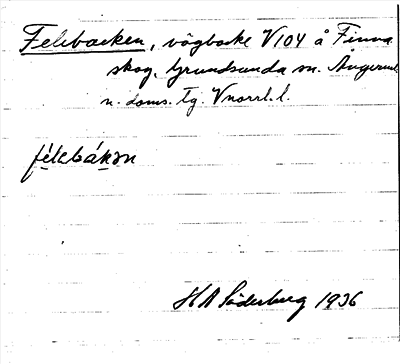 Felebacken, vägbacke V104 å Finna
skog, Grundsunda sn. Ångerml.
n. doms. Tg. Vnorrl. l.
félebákən
H A Söderberg 1936